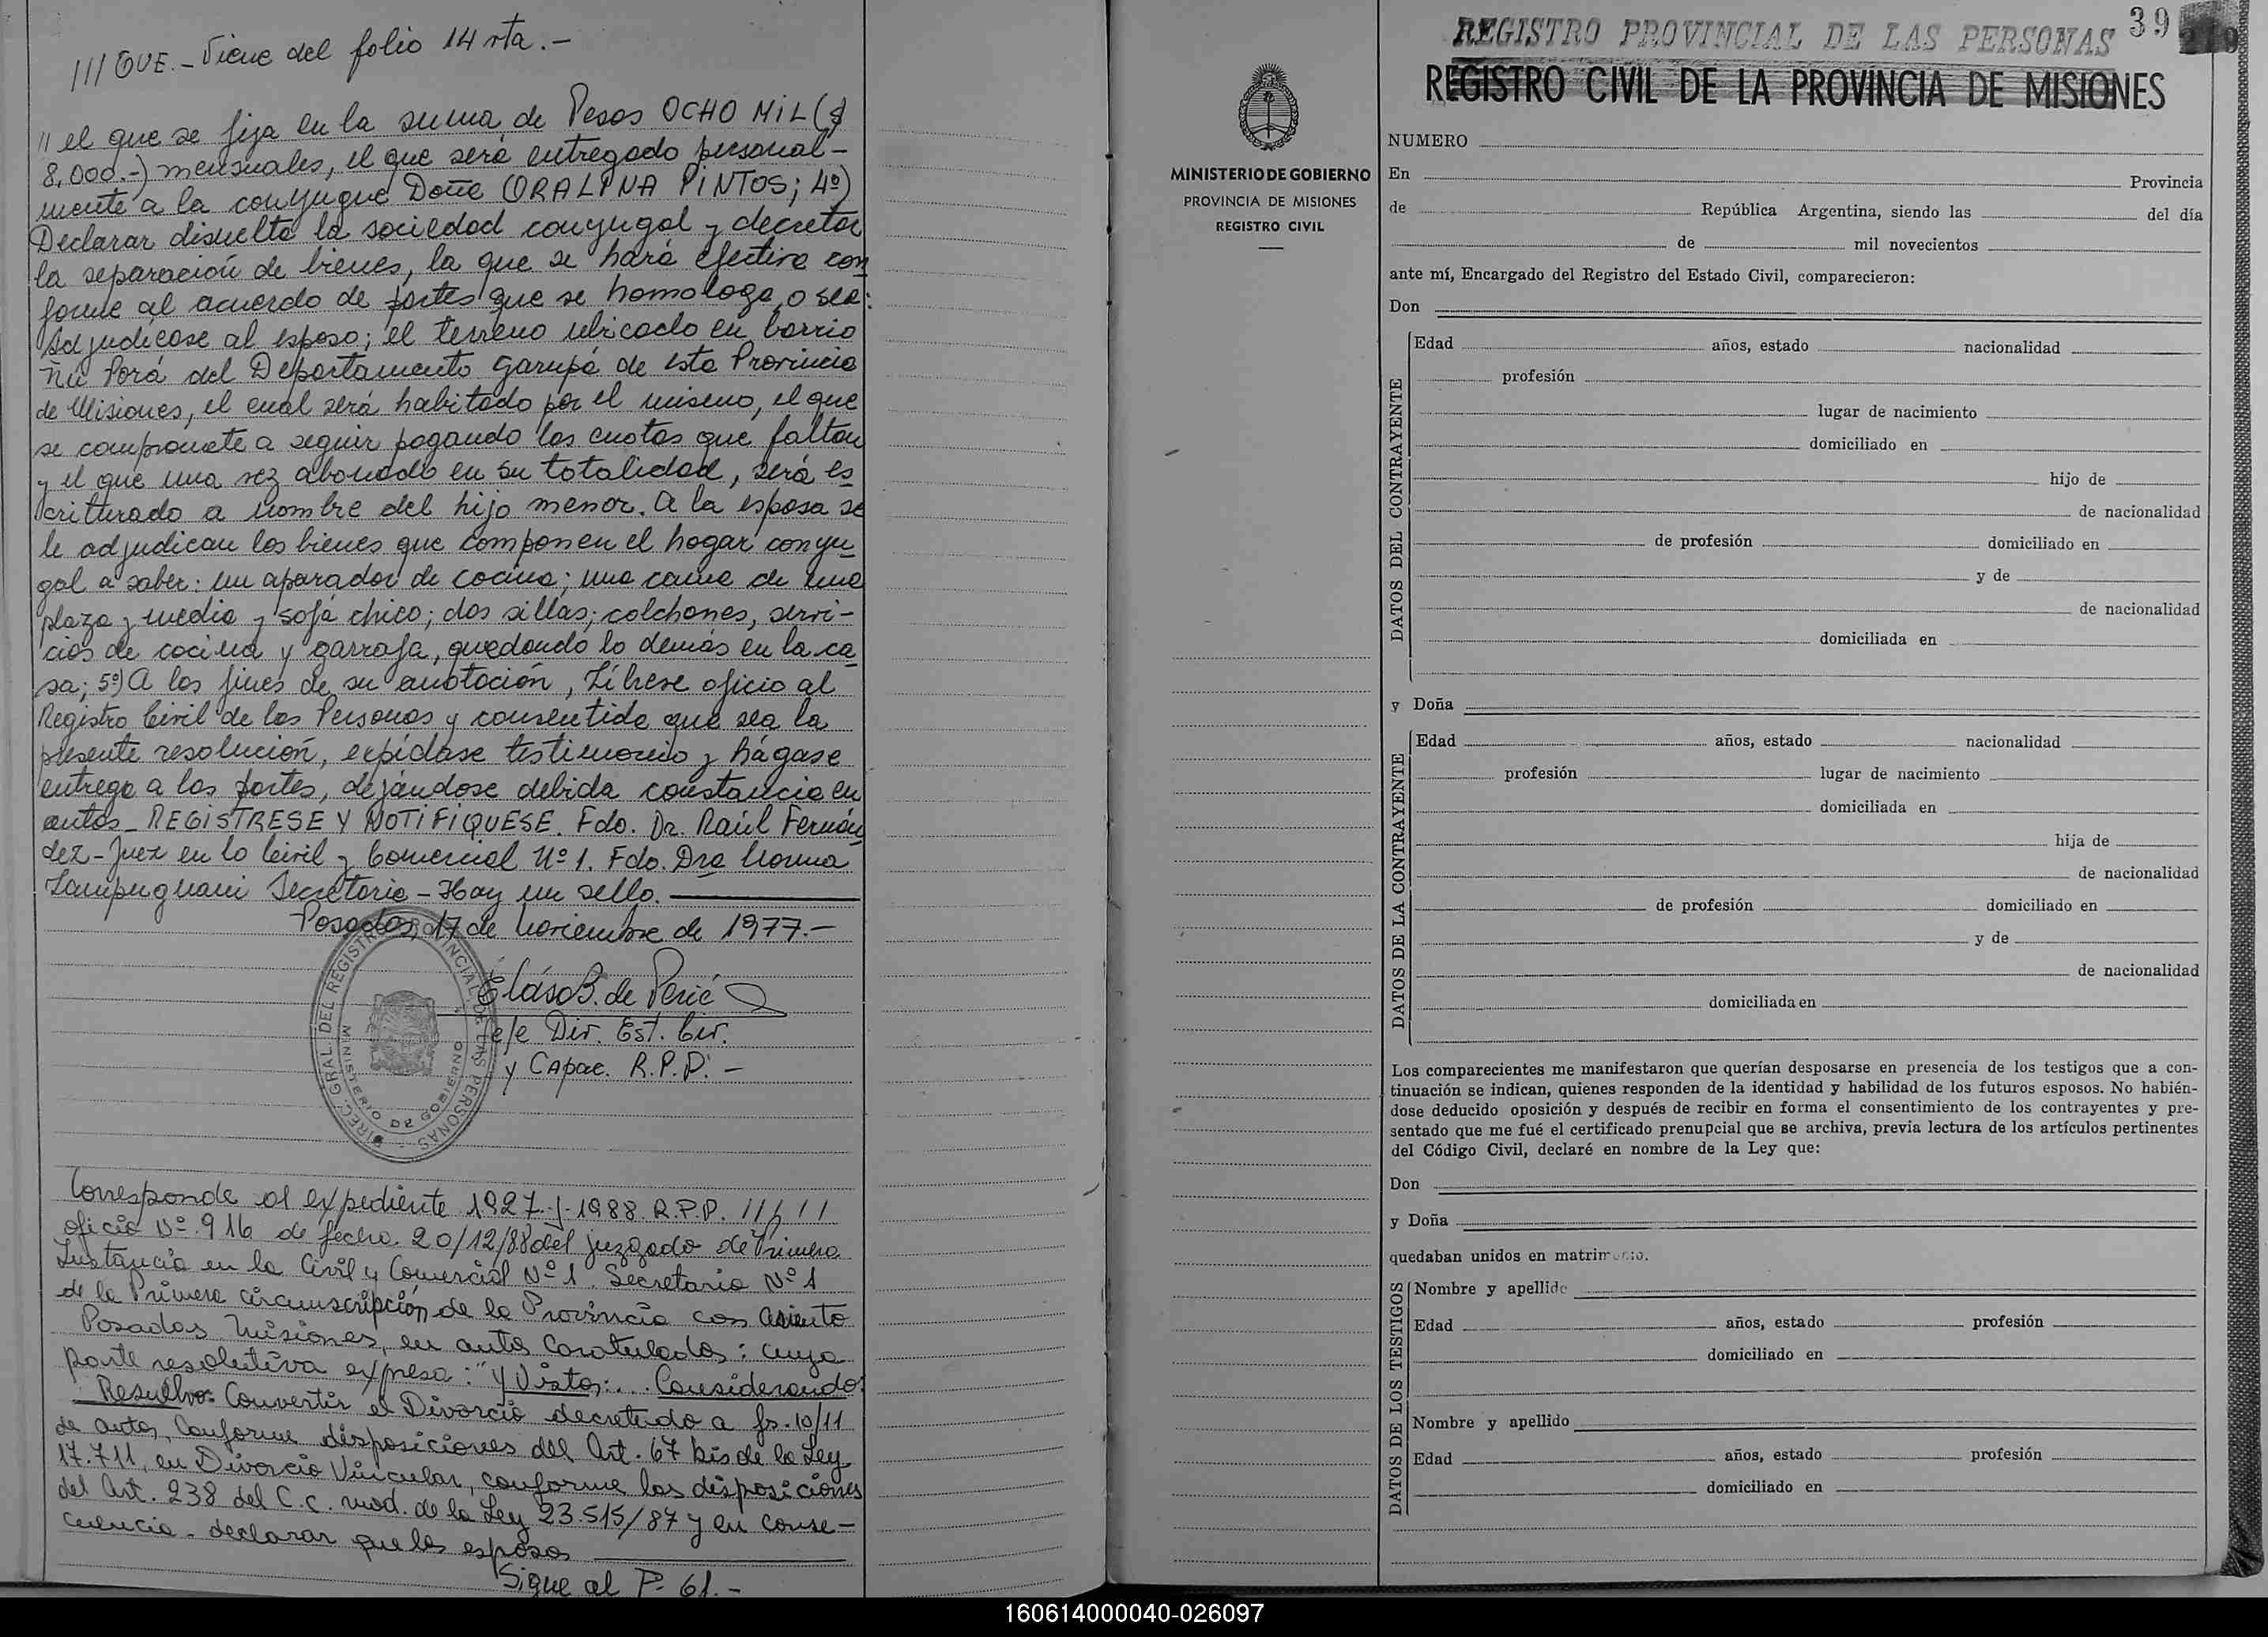 ///QUE.- Viene del folio 14 vta.-
" el que se fija en la suma de Pesos OCHO MIL ($
8.000.-) mensuales, el que será entregado personal-
mente a la conyugue Doña CORALINA PINTOS; 4º)
Declarar disuelta la sociedad conyugal y decretar
la separación de bienes, la que se hará efectiva con
forme al acuerdo de partes que se homologa, o sea:
Adjudícase al esposo; el terreno ubicado en barrio
Ñu Porá del Departamento Garupá de esta Provincia
de Misiones, el cual será habitado por el mismo, el que
se compromete a seguir pagando las cuotas que faltan
y el que una vez abonado en su totalidad, será es
criturado a nombre del hijo menor. A la esposa se
le adjudican los bienes que componen el hogar conyu
gal a saber: un aparador de cocina; una cama de una
plaza y media y sofá chico; dos sillas; colchones, servi-
cios de cocina y garrafa, quedando lo demás en la ca
sa; 5º) A los fines de su anotación, Líbrese oficio al
Registro Civil de las Personas y consentida que sea la
presente resolución, expídase testimonio y hágase
entrega a las partes, dejándose debida constancia en
autos_ REGISTRESE Y NOTIFIQUESE. Fdo. Dr. Raúl Fernán
dez - Juez en lo Civil y Comercial Nº 1. Fdo. Dra Norma
Lampugnani Secretaria - Hay un sello.
Posadas, 17 de Noviembre de 1977.-
B. de Perié
e/e Dir. Est. Civ.
y Capac. R.P.P. -
DIREC. GRAL. DEL REGISTRO PROVINCIAL DE LAS PERSONAS
MINISTERIO DE GOBIERNO
Corresponde al expediente 1927-J-1988 R.P.P. /////
oficio Nº 916 de fecha 20/12/88 del juzgado de Primera
Instancia en lo Civil y Comercial Nº 1 Secretaria Nº 1
de la Primera circunscripción de la Provincia con asiento
Posadas Misiones, en autos Caratulados: cuya
parte resolutiva expresa: "Y Vistos:... Considerando:
Resuelvo: Convertir el Divorcio decretado a fs. 10/11
de autos, Conforme disposiciones del Art. 67 bis de la Ley
17.711, en Divorcio Vincular, conforme las disposiciones
del Art. 238 del C.C. mod. de la Ley 23.515/87 y en conse-
cuencia - declarar que los esposos
Sigue al Fº 61.-
MINISTERIO DE GOBIERNO
PROVINCIA DE MISIONES
REGISTRO CIVIL
REGISTRO PROVINCIAL DE LAS PERSONAS
39
219
REGISTRO CIVIL DE LA PROVINCIA DE MISIONES
NUMERO
En Provincia
de República Argentina, siendo las del día
de mil novecientos
ante mí, Encargado del Registro del Estado Civil, comparecieron:
Don
DATOS DEL CONTRAYENTE
Edad años, estado nacionalidad
profesión
lugar de nacimiento
domiciliado en
hijo de
de nacionalidad
de profesión domiciliado en
y de
de nacionalidad
domiciliada en
y Doña
DATOS DE LA CONTRAYENTE
Edad años, estado nacionalidad
profesión lugar de nacimiento
domiciliada en
hija de
de nacionalidad
de profesión domiciliado en
y de
de nacionalidad
domiciliada en
Los comparecientes me manifestaron que querían desposarse en presencia de los testigos que a con-
tinuación se indican, quienes responden de la identidad y habilidad de los futuros esposos. No habién-
dose deducido oposición y después de recibir en forma el consentimiento de los contrayentes y pre-
sentado que me fué el certificado prenupcial que se archiva, previa lectura de los artículos pertinentes
del Código Civil, declaré en nombre de la Ley que:
Don
y Doña
quedaban unidos en matrimonio.
DATOS DE LOS TESTIGOS
Nombre y apellido
Edad años, estado profesión
domiciliado en
Nombre y apellido
Edad años, estado profesión
domiciliado en
160614000040-026097